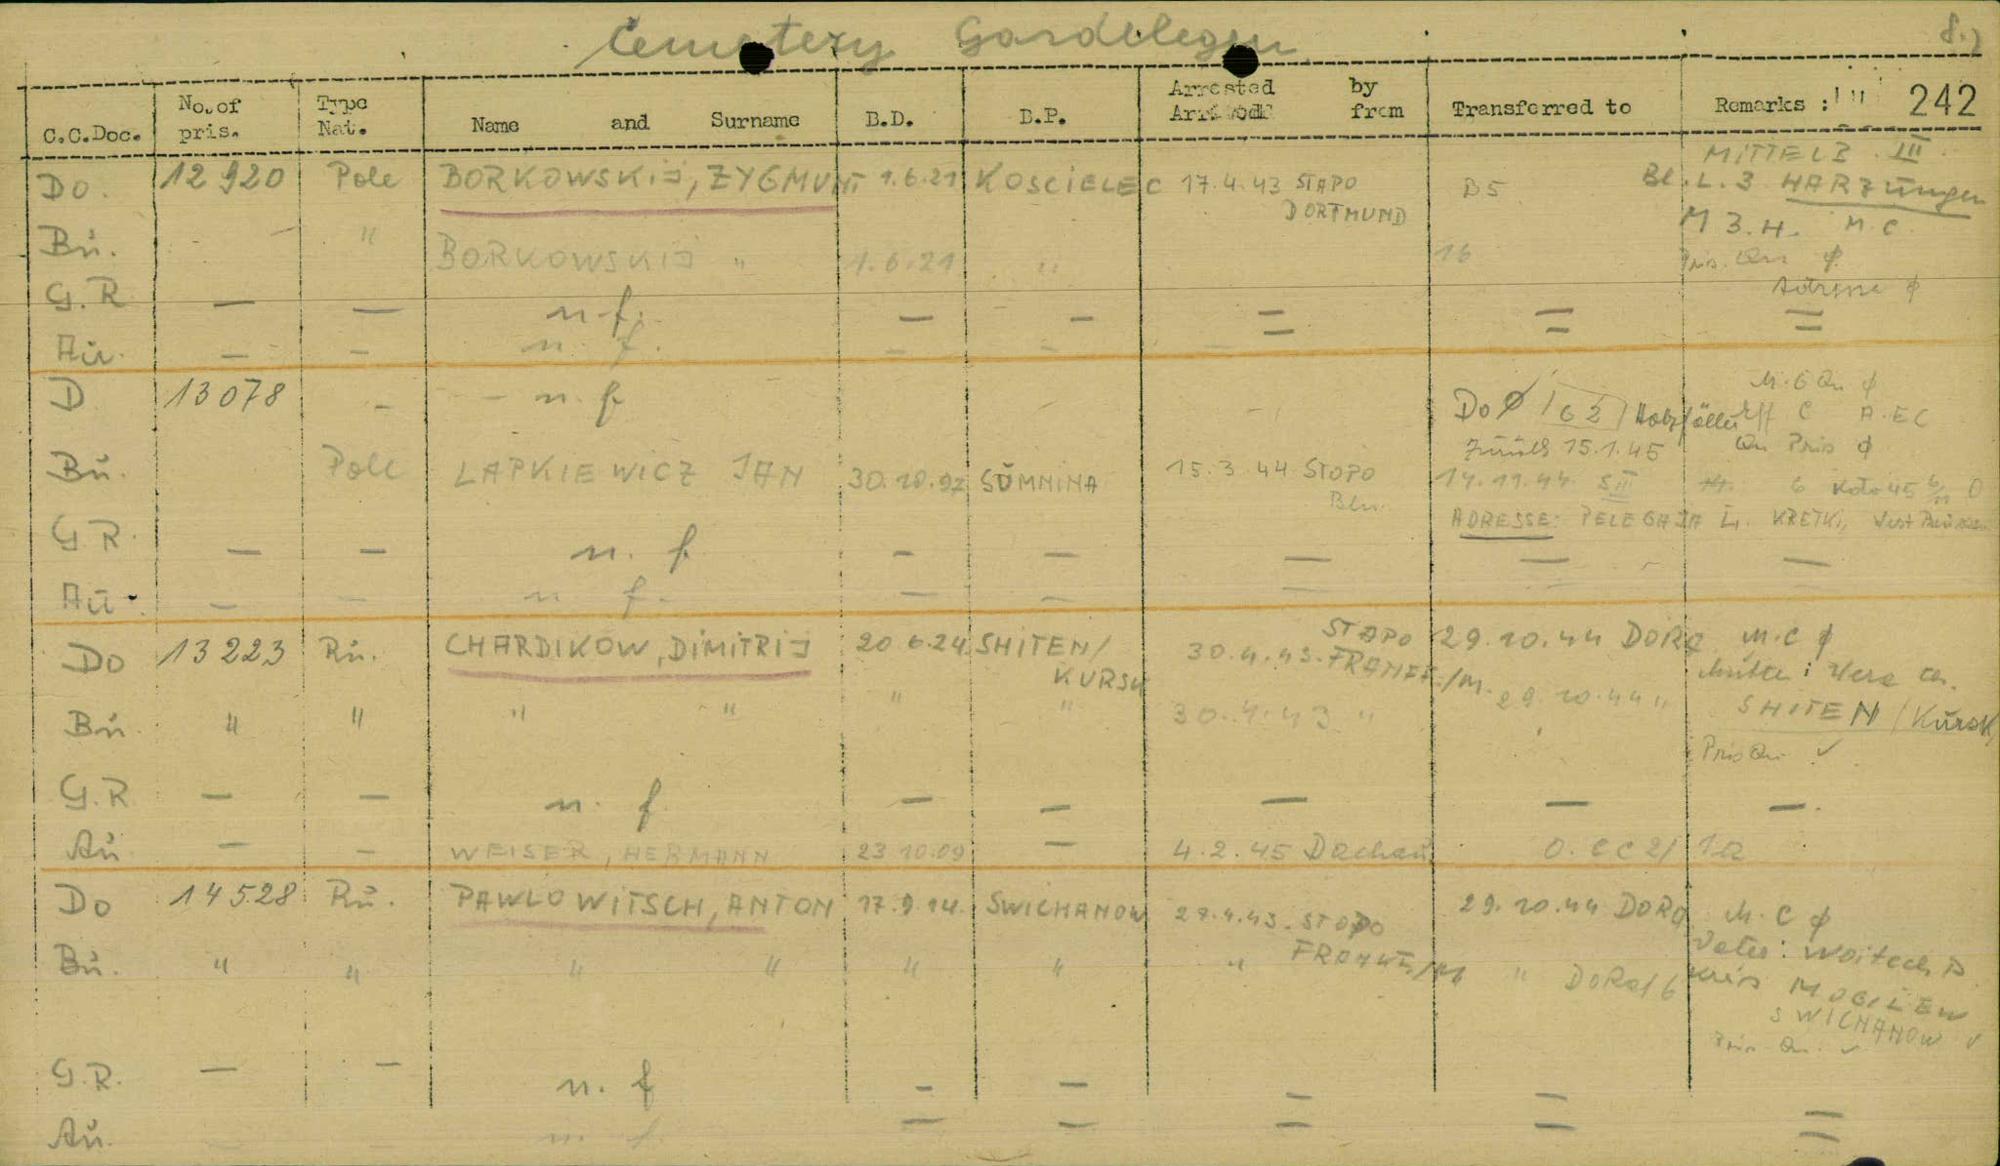 Cemetery Gardelegen 8.)
C.C.Doc. No. of pris. Type Nat. Name and Surname B.D. B.P. Arrested by Arrived from Transferred to Remarks : 242
MITTELB. III
Do. 12920 Pole BORKOWSKIJ, ZYGMUNT 1.6.21 KOSCIELEC 17.4.43 STAPO DORTMUND B5 Bl. L. 3 HARZungen
M 3. H. M.C.
Bu. " BORKOWSKIJ " 1.6.21 " 16 Pris. Qu ϕ
Adresse ϕ
G.R — — n.f. — — = = =
Au. — — n.f. — — —
D 13078 – – n.f. – Do Ø / 62 / Holzfäller C A.EC
M. G Qu ϕ
zurück 15.1.45 Qu Pris ϕ
Bu. Pole LAPKIEWICZ JAN 30.10.97 SUMNINA 15.3.44 STOPO 14.11.44 SIII
ADRESSE: KRETKI,
G R. — — n. f — — — — —
Au. — — n. f. — — = = =
Do 13223 Ru. CHARDIKOW, DIMITRIJ 20 6.24 SHITEN/ KURSK 30.4.43. STAPO FRANKF./M. 29.10.44 DORA M.C ϕ
Mutter: Wera Ch.
Bu " " " " " " 30.4.43 " 29.10.44 " SHITEN / Kursk
Pris Qu ✓
G.R — — n. f — — — — —.
Au — — WEISER, HERMANN 23 10.09 — 4.2.45 Dachau O. CC 2/
Do 14528 Ru. PAWLOWITSCH, ANTON 17.9.14. SWICHANOW 27.4.43. STOPO FRANKF./M 29.10.44 DORA M. C ϕ
Vater: Woitech P.
Bu. " " " " " " " " DORA/6 Kreis MOGILEW
SWICHANOW ✓
Pris. Qu. ✓
G.R. — — n. f – — = = =
Au. n. f. — — = = =